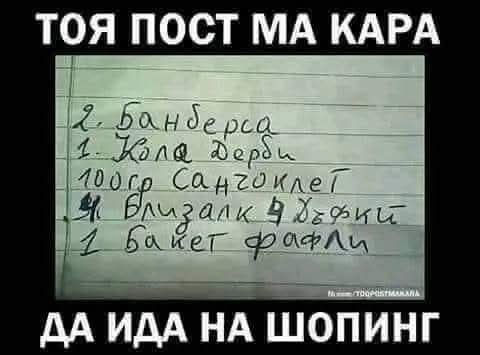 ТОЯ ПОСТ МА КАРА
2. Банберса
1. Кола Дерби
100гр Санчоклет
4. Близалк 4 Дъфки
1 Бакет фафли
fb.com/TOQPOSTMAKARA
ДА ИДА НА ШОПИНГ